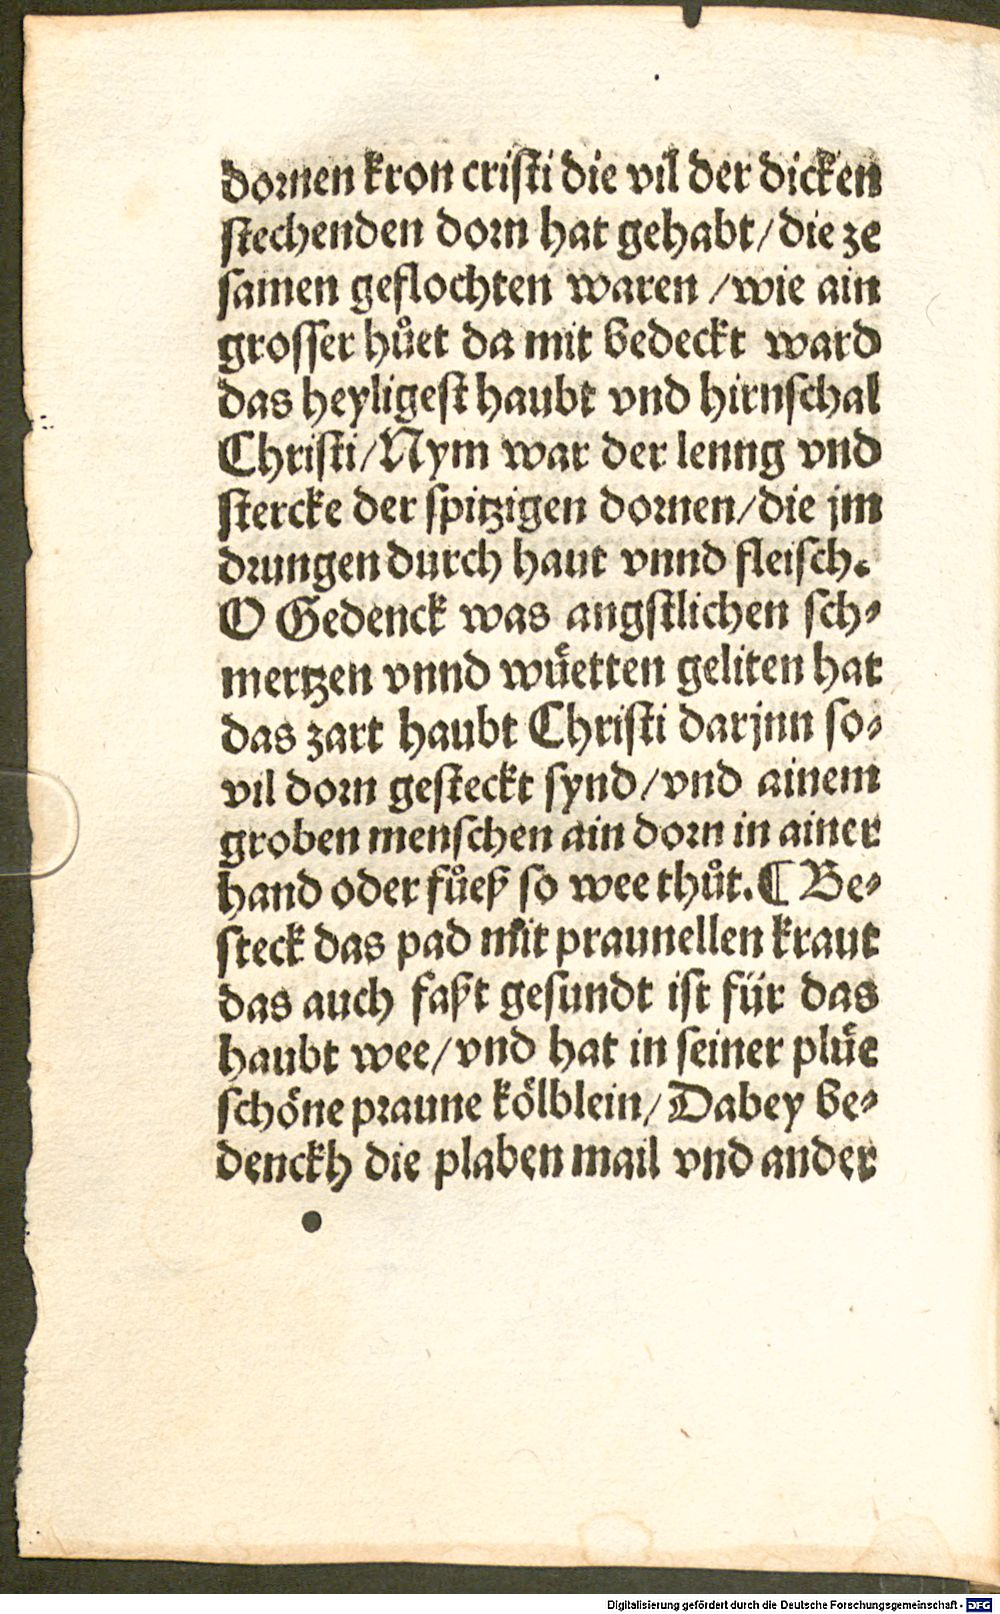 dornen kron cristi die vil der dicken
stechenden dorn hat gehabt/die ze
samen geflochten waren /wie ain
grosser hůet da mit bedeckt ward
das heyligest haubt vnd hirnschal
Christi/Nym war der lenng vnd
stercke der spitzigen dornen/die jm
drungen durch haut vnnd fleisch.
O Gedenck was angstlichen sch⸗
mertzen vnnd wuͤetten geliten hat
das zart haubt Christi darjnn so⸗
vil dorn gesteckt synd/vnd ainem
groben menschen ain dorn in ainer
hand oder fůeß so wee thůt.¶ Be⸗
steck das pad mit praunellen kraut
das auch faßt gesundt ist für das
haubt wee/vnd hat in seiner pluͤe
schoͤne praune koͤlblein/Dabey be⸗
denckh die plaben mail vnd ander
Digitalisierung gefördert durch die Deutsche Forschungsgemeinschaft - DFG